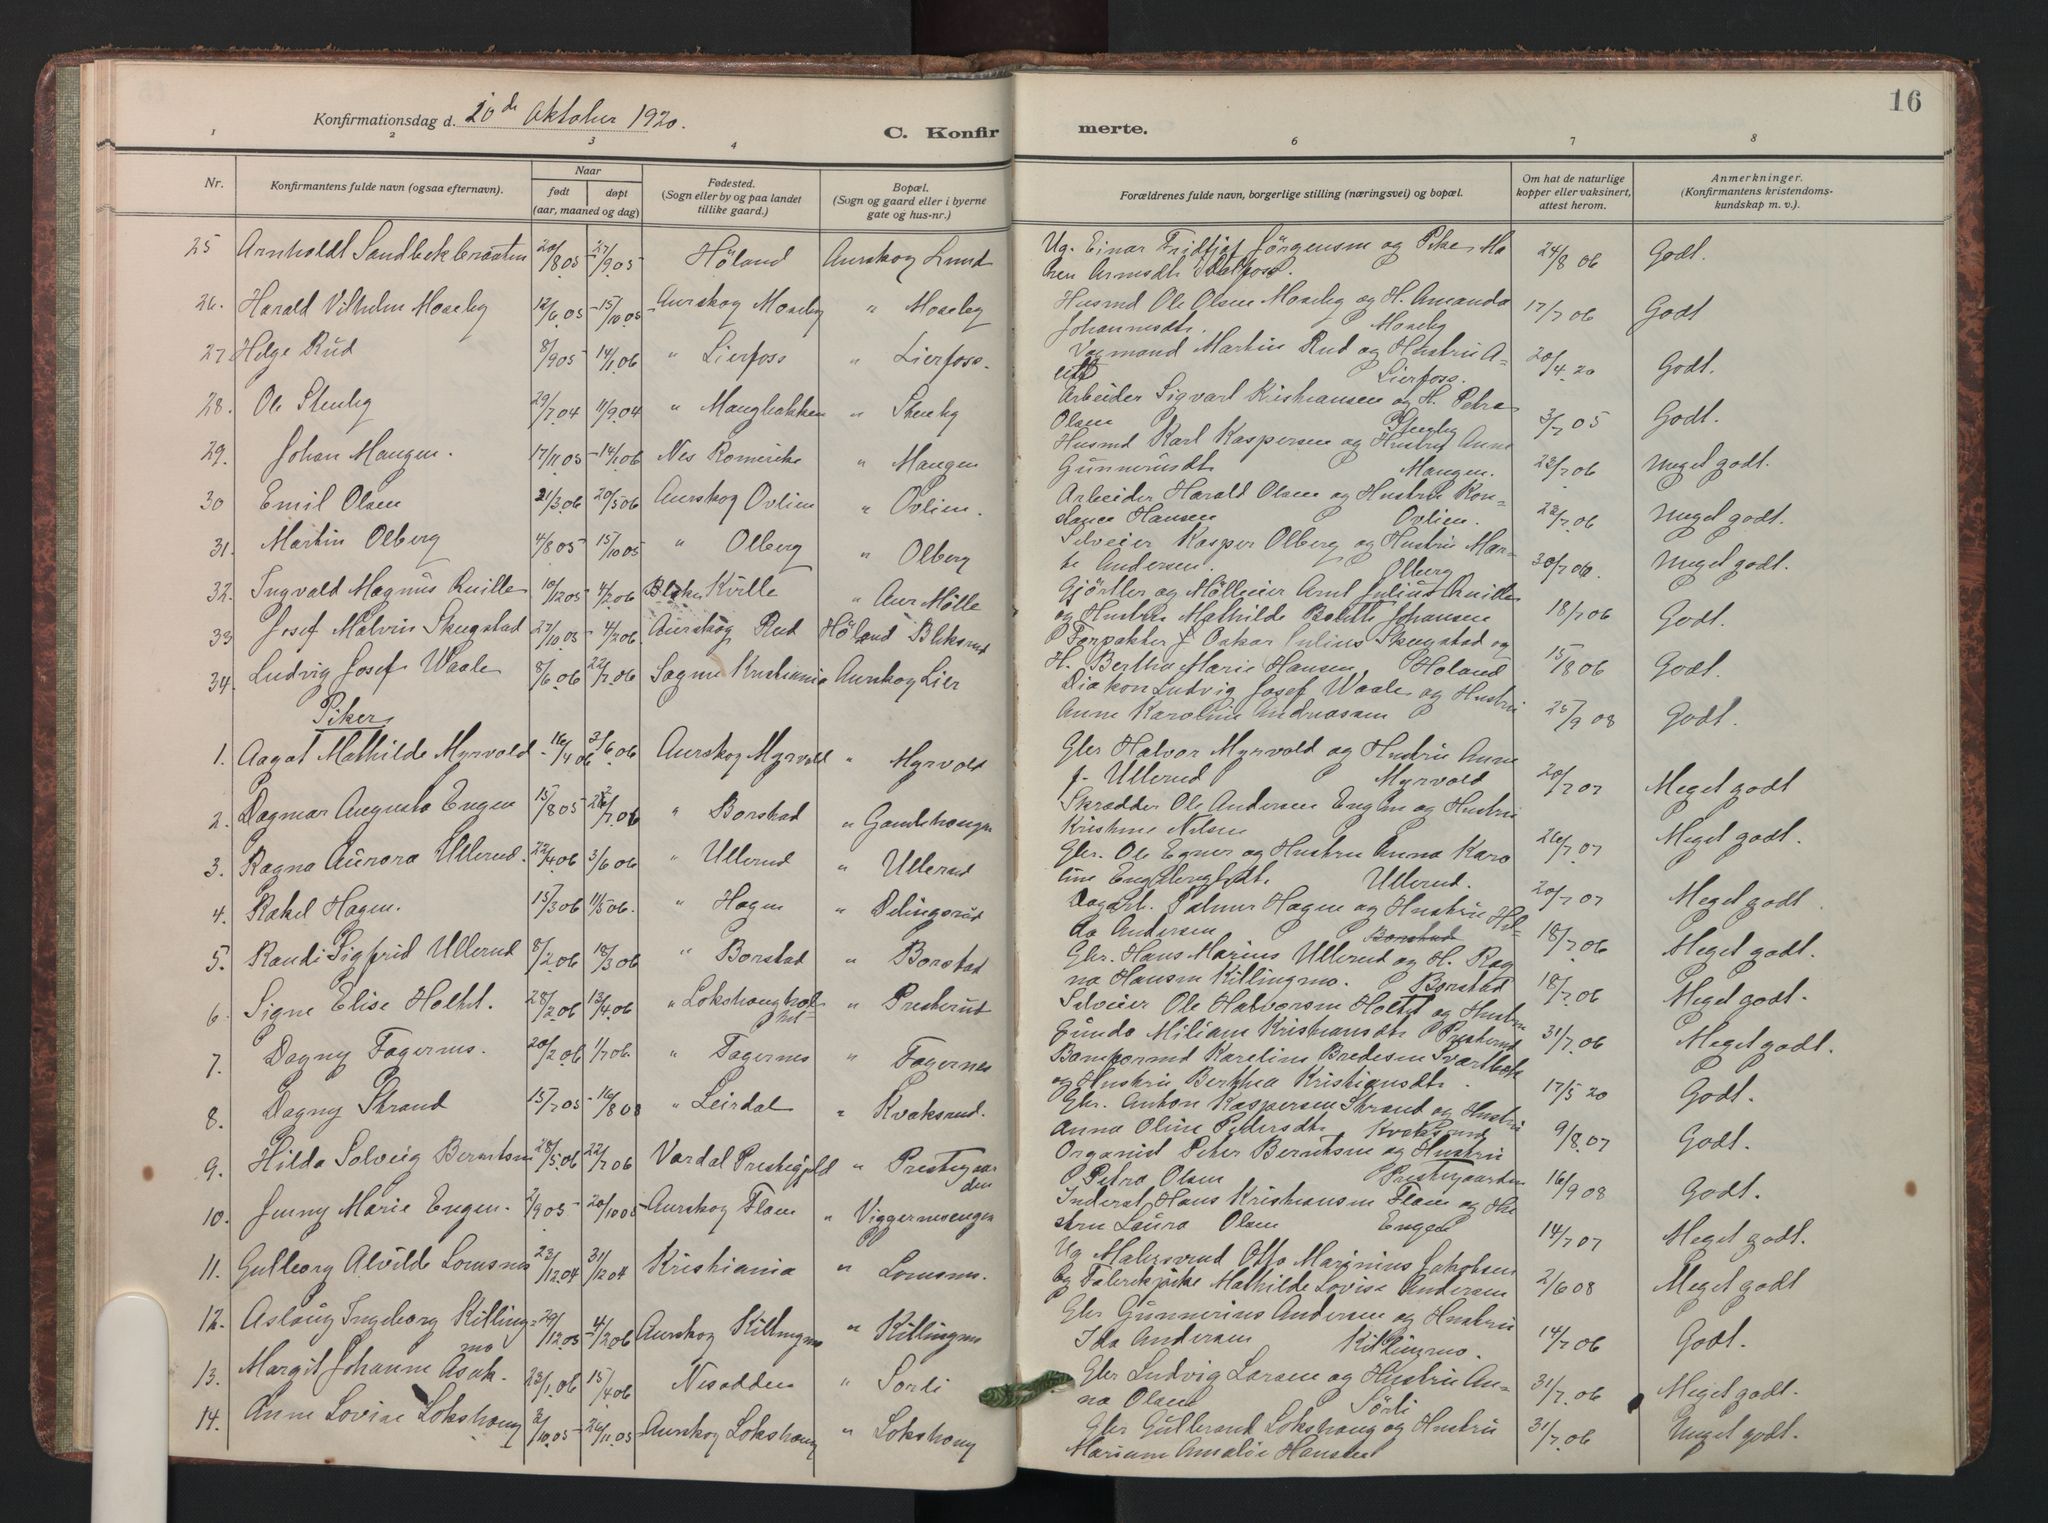 16
Konfirmationsdag d. 20de Oktober 1920.
C. Konfirmerte.
1 2 3 4 6 7 8
Nr. | Konfirmantens fulde navn (ogsaa efternavn). | Naar født | døpt (aar, maaned og dag) | Fødested. (Sogn eller by og paa landet tillike gaard.) | Bopæl. (Sogn og gaard eller i byerne gate og hus-nr.) | Forældrenes fulde navn, borgerlige stilling (næringsvei) og bopæl. | Om hat de naturlige kopper eller vaksinert, attest herom. | Anmerkninger. (Konfirmantens kristendomskundskap m. v.).
25 Arnholdt Sandbek 20/8 05 27/9 05 Höland Aurskog Lund Ug. Einar Fridtjof Jörgensen og Pike 24/8 06 Godt.
26. Harald Vilhelm Moseby 12/6 05 15/10 05 Aurskog Moseby " Moseby Husmd Ole Olsen Moseby og H. Amanda 17/7 06 Godt
Johannesdt. Moseby
27 Helge Rud 8/9 05 14/1 06 " Lierfoss " Lierfoss. Martin Rud og Hustru 20/4 20 Godt.
Lierfoss.
28. Ole Stenby 29/7 04 11/9 04 " Mangbakken " Stenby Arbeider Sigvart Kristiansen og H. Petra 3/7 05 Godt.
Olsen Stenby
29. Johan Mangen. 17/11 05 14/1 06 Nes Romerike " Mangen Husmd Karl Kaspersen og Hustru Anne 23/7 06 Meget godt.
Gunnerusdt Mangen.
30 Emil Olsen 21/3 06 20/5 06 Aurskog Ovlien " Ovlien. Arbeider Harald Olsen og Hustru Kon- 22/7 06 Meget godt.
stance Hansen Ovlien.
31. Martin Olberg 4/8 05 15/10 05 " Olberg " Olberg Selveier Kasper Olberg og Hustru Mar- 30/7 06. Meget godt.
te Andersen. Olberg
32. Ingvald Magnus Kville 10/12 05 4/2 06 Blaker Kville " Aur Mölle Gjörtler og Mölleeier Arnt Julius Kville 18/7 06 Godt.
og Hustru Mathilde Johansen
33 Josef Malvin Skugstad 27/10 05 4/2 06 Aurskog Rud Höland Forpakter Oskar Julius Skugstad og 15/8 06 Godt.
H. Berthe Marie Hansen Höland
34. Ludvig Josef Waale 8/6 06 22/7 06 Sagene Kristiania Aurskog Lier Diakon Ludvig Josef Waale og Hustru 25/9 08 Godt.
Anne Karoline Andreassen
Piker
1. Aagot Mathilde Myrvold 16/4 06 3/6 06 Aurskog Myrvold " Myrvold Gbr Halvor Myrvold og Hustru Anne 20/7 07 Meget godt
f. Ullerud Myrvold
2. Dagmar Augusta Engen 15/8 05 " Borstad " Skrædder Ole Andersen Engen og Hustru 26/7 07 Meget godt.
Kristine Nilsen
3. Ragna Aurora Ullerud. 22/4 06 3/6 06 " Ullerud " Ullerud Gbr. Ole Egner og Hustru Anna Karo 20/7 07 Meget godt.
line Engebregtsdt. Ullerud.
4. Rakel Hagen. 15/3 06 11/5 06. " Hagen " Delingsrud Dagarb. Palmer Hagen og Hustru Hil- 18/7 06 Meget godt.
da Andersen Borstad
5. Randi Sigfrid Ullerud 8/2 06 18/3 06 " Borstad " Borstad Gbr. Hans Marius Ullerud og H. Rag 18/7 06 Meget godt.
na Hansen Killingmo. Borstad
6. Signe Elise Holtet. 28/2 06 13/4 06 " Lokshaug " Presterud Selveier Ole Halvorsen Holtet og Hustru 31/7 06 Meget godt.
Gunda Kristiansdt Presterud
7. Dagny Fagernes. 20/2 06 1/7 06. " Fagernes " Fagernes Karelius Bredesen 17/5 20 Godt.
og Hustru Berthea Kristiansdt.
8. Dagny Strand 15/7 05 16/8 08 " Leirdal " Kvaksrud. Gbr. Anton Kaspersen Strand og Hustru 9/8.07 Godt.
Anna Oline Pettersdt. Kvaksrud
9. Hilda Solveig Berntsen 28/5 06 22/7 06 Vardal Prestegjeld " Prestegaar Organist Peter Berntsen og Hustru 16/9 08 Godt.
den Petra Olsen Prestegaarden
10. Jenny Marie Engen. 2/9 05 20/10 05 Aurskog Flaen " Viggernesengen Inderst Hans Kristiansen Flaen og Hu 14/7 07 Meget godt.
stru Laura Olsen Engen
11. Gulborg Alvilde Lomsnes 23/12 04 31/12 04 Kristiania " Lomsnes. Ug Malersvend Otto Marinius Jakobsen 2/6 08 Meget godt
og Fabrikpike Mathilde Lovise Andersen
12. Aslaug Ingeborg Killing- 29/12 05 4/2 06 Aurskog Killingmo " Killingmo Gbr Gunnerius Andersen og Hustru 14/7 06 Godt.
mo Ida Andersen Killingmo.
13. Margit Johanne Asak. 23/1 06 15/4 06 Nesodden " Sörli Gbr Ludvig Larsen og Hustru An- 31/7 06 Meget godt.
na Olsen Sörli
14. Anne Lovise Lokshaug 2/10 05 26/11 05 Aurskog Lokshaug " Lokshaug Gbr Gulbrand Lokshaug og Hustru 31/7 06 Meget godt.
Mariane Amalie Hansen